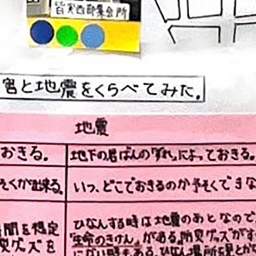 皆実西部集会所
害と地震をくらべてみた。
地震
おきる。
地下の岩ばんの「ずれ」によっておきる。
そくが出来る。
いつ、どこでおきるのか予そくできな
時間を想定
災グッズを
ひなんする時は地震のあとなので
「生命のきけん」がある。防災グッズがす
にない時もある。ひなん場所を見とか